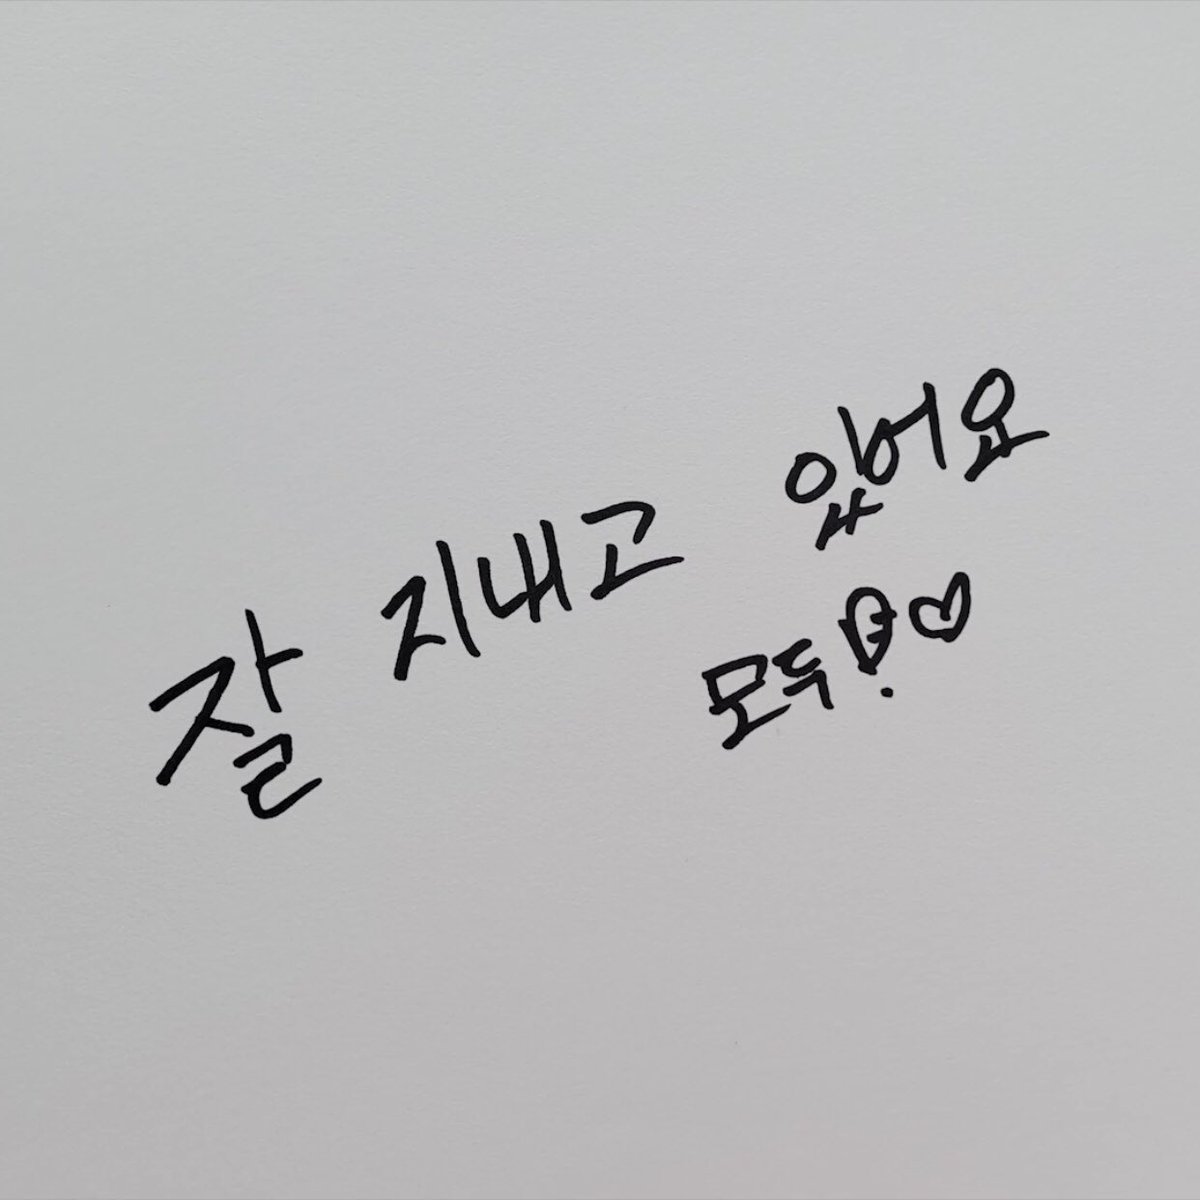 잘 지내고 있어요
모두!♡